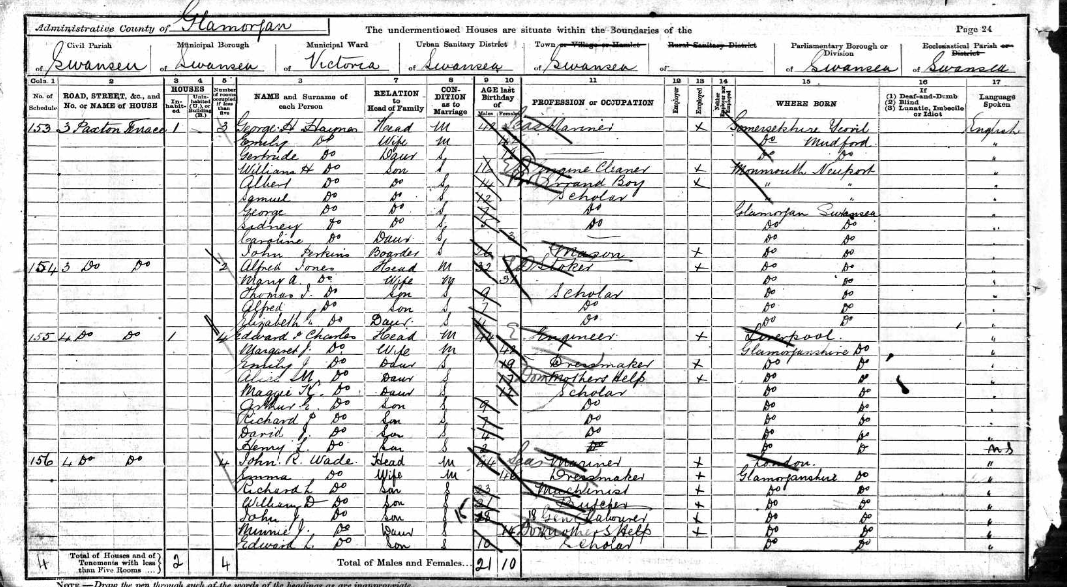 Administrative County of Glamorgan The undermentioned Houses are situate within the Boundaries of the Page 24
Civil Parish Municipal Borough Municipal Ward Urban Sanitary District Town or Village or Hamlet Rural Sanitary District Parliamentary Borough or Division Ecclesiastical Parish or District
of Swansea of Swansea of Victoria of Swansea of Swansea of of Swansea of Swansea
Cols. 1 2 3 4 5 6 7 8 9 10 11 12 13 14 15 16 17
No. of Schedule ROAD, STREET, &c., and No. or NAME of HOUSE HOUSES Inhabited NAME and Surname of each Person RELATION to Head of Family CONDITION as to Marriage AGE last Birthday of Males Females PROFESSION or OCCUPATION Employer Employed WHERE BORN If (1) Deaf-and-Dumb (2) Blind (3) Lunatic, Imbecile or Idiot Language Spoken
153 3 Paxton Terrace 1 3 George H Haynes Head M Seas Mariner x Somersetshire Yeovil English
Emily Do Wife M Do Mudford "
Gertrude Do Daur S Do Do "
William H Do Son S Engine Cleaner x Monmouth Newport "
Albert Do Do S 14 Errand Boy x " " "
Samuel Do Do S 12 Scholar "
George Do Do S Do Glamorgan Swansea "
Sidney Do Do S Do Do Do "
Caroline Do Daur S Do Do "
John Perkins Boarder S 26 Mason x Do Do "
154 3 Do Do 2 Alfred Jones Head M 32 Stoker x Do Do "
Mary A. Do Wife M Do Do "
Thomas J. Do Son S 9 Scholar Do Do "
Alfred Do Son S 7 Do Do Do "
Elizabeth Do Daur S Do Do Do "
155 4 Do Do 1 4 Edward Charles Head M 44 Engineer x Liverpool "
Margaret J. Do Wife M 42 Glamorganshire Do "
Emily J Do Daur S 19 Dressmaker x Do Do "
Alice M. Do Daur S Mothers Help x Do Do "
Maggie Do Daur S Scholar Do Do "
Arthur E. Do Son S 9 Do Do Do "
Richard Do Son S 7 Do Do Do "
David J. Do Son S 4 Do Do Do "
Henry L. Do Son S 2 Do Do Do
156 4 Do Do 4 John R. Wade Head M 44 Seas Mariner x London "
Emma Do Wife M Dressmaker x Glamorganshire Do "
Richard L Do Son S 23 Machinist x Do Do "
William D Do Son S Butcher x Do Do "
John Do Son S Gen Labourer x Do Do "
Minnie J. Do Daur S 14 Mothers Help x Do Do "
Edward L. Do Son S 10 Scholar Do Do "
4 Total of Houses and of Tenements with less than Five Rooms 2 4 Total of Males and Females... 21 10
NOTE.—Draw the pen through such of the words of the headings as are inappropriate.